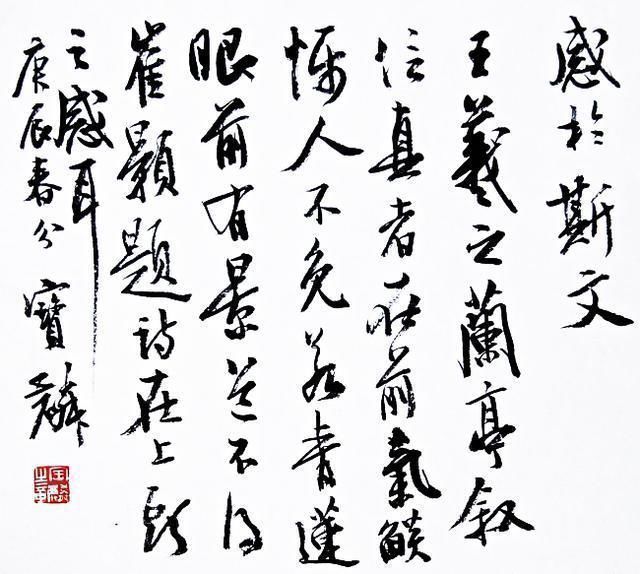 感於斯文
王羲之蘭亭叙
信真者在前氣燄
人不免若青蓮
眼前有景道不得
崔顥題詩在上頭
之感耳
庚辰春分 寶麟